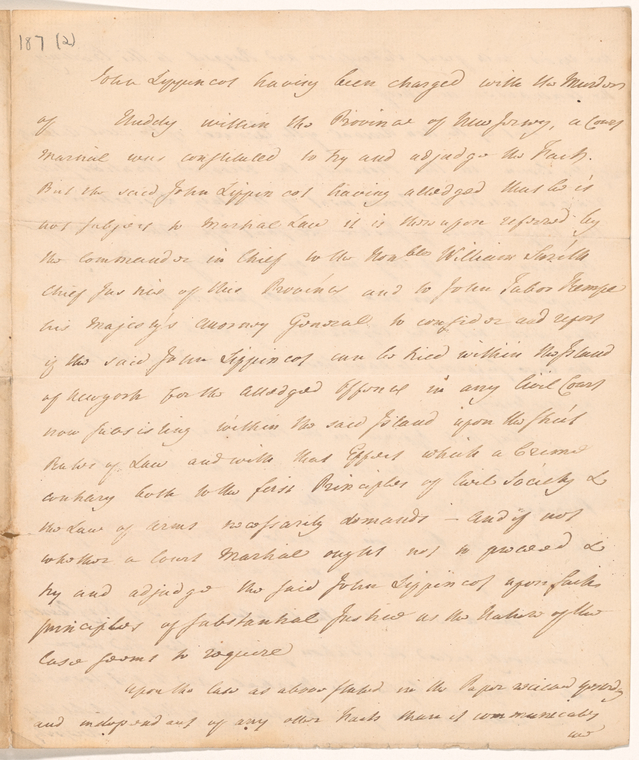 187 (2)
John Lippincot having been charged with the Murder
of Huddy within the Province of New Jersey, a Court
Martial was constituted to try and adjudge the Fact.
But the said John Lippincot having alledged that he is
not subject to Martial Law it is thereupon referred by
the Commander in Chief to the Honble William Smith
Chief Justice of this Province and to John Tabor Kempe
his Majesty's Attorney General to consider and report
if the said John Lippincot can be tried within the Island
of New york for the Alledged Offence in any Civil Court
now subsisting within the said Island upon the strict
Rules of Law and with that Effect which a Crime
contrary both to the first Principles of Civil Society &
the Law of Arms necessarily demands – and if not
whether a Court Martial ought not to proceed &
try and adjudge the said John Lippincot upon such
principles of substantial Justice as the Nature of the
Case seems to require
Upon the Case as above stated in the Paper received yesterday
and independent of any other Facts than it communicates
we